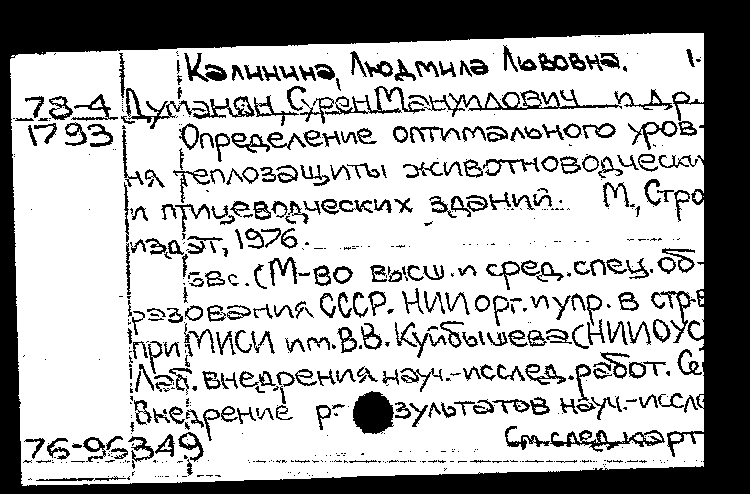 Калинина, Людмила Львовна. 1-
78-4 Думанян, Сурен Мануилович и др.
1793 Определение оптимального уров-
ня теплозащиты животноводчески
и птицеводческих зданий. М, Стро
издат, 1976.
38с. (М-во высш. и сред. спец. об-
разования СССР. НИИ орг. и упр. в стр-в
при МИСИ им. В.В. Куйбышева (НИИОУС
Лаб. внедрения науч.-исслед. работ. Се
Внедрение р- зультатов науч.-иссле
76-96349 См. след. карт